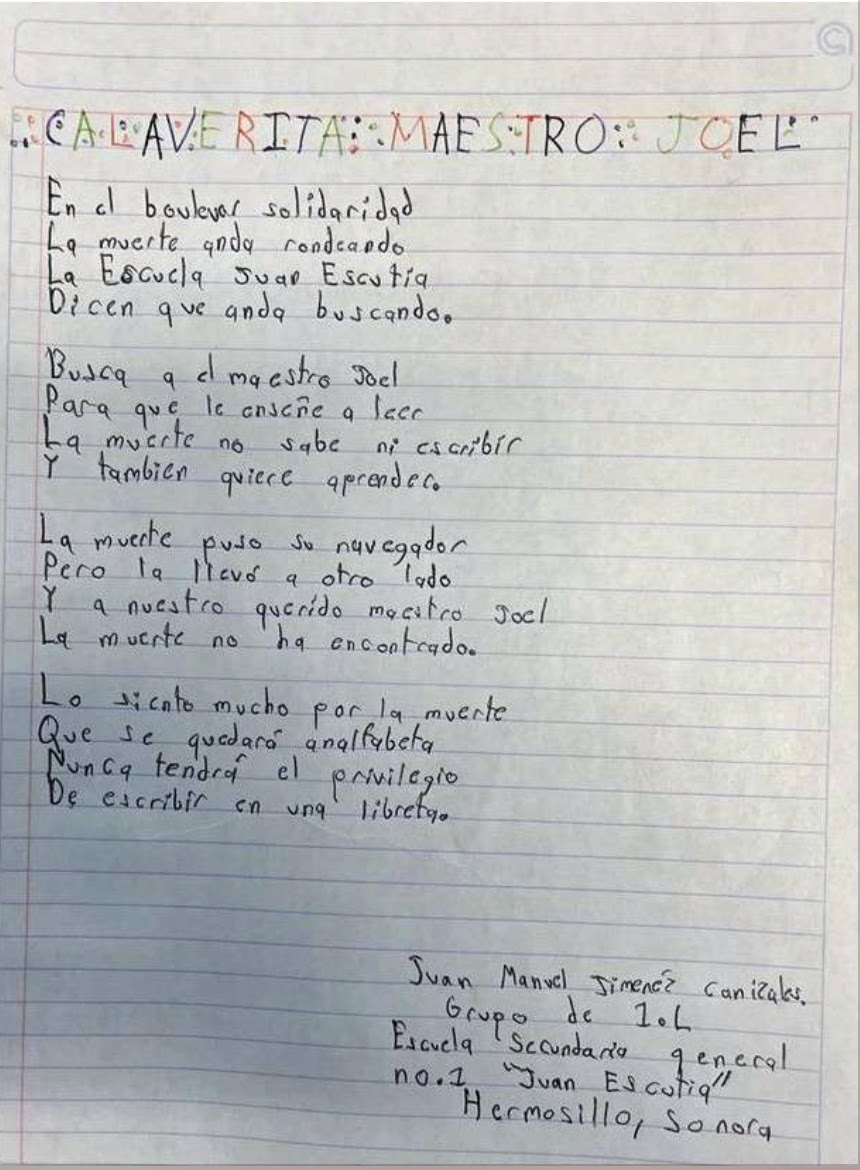 CALAVERITA MAESTRO JOEL
En el boulevar solidaridad
La muerte anda rondeando
La Escuela Juan Escutia
Dicen que anda buscando.
Busca a el maestro Joel
Para que le enseñe a leer
La muerte no sabe ni escribir
Y tambien quiere aprender.
La muerte puso su navegador
Pero la llevó a otro lado
Y a nuestro querido maestro Joel
La muerte no ha encontrado.
Lo siento mucho por la muerte
Que se quedará analfabeta
Nunca tendrá el privilegio
De escribir en una libreta.
Juan Manuel Jimenéz Canizales.
Grupo de 1.L
Escuela Secundaria general
no.1 "Juan Escutia"
Hermosillo, Sonora